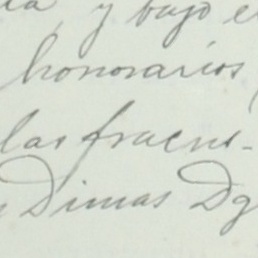 y bajo e
honorarios
las fracns-
Dimas Dg